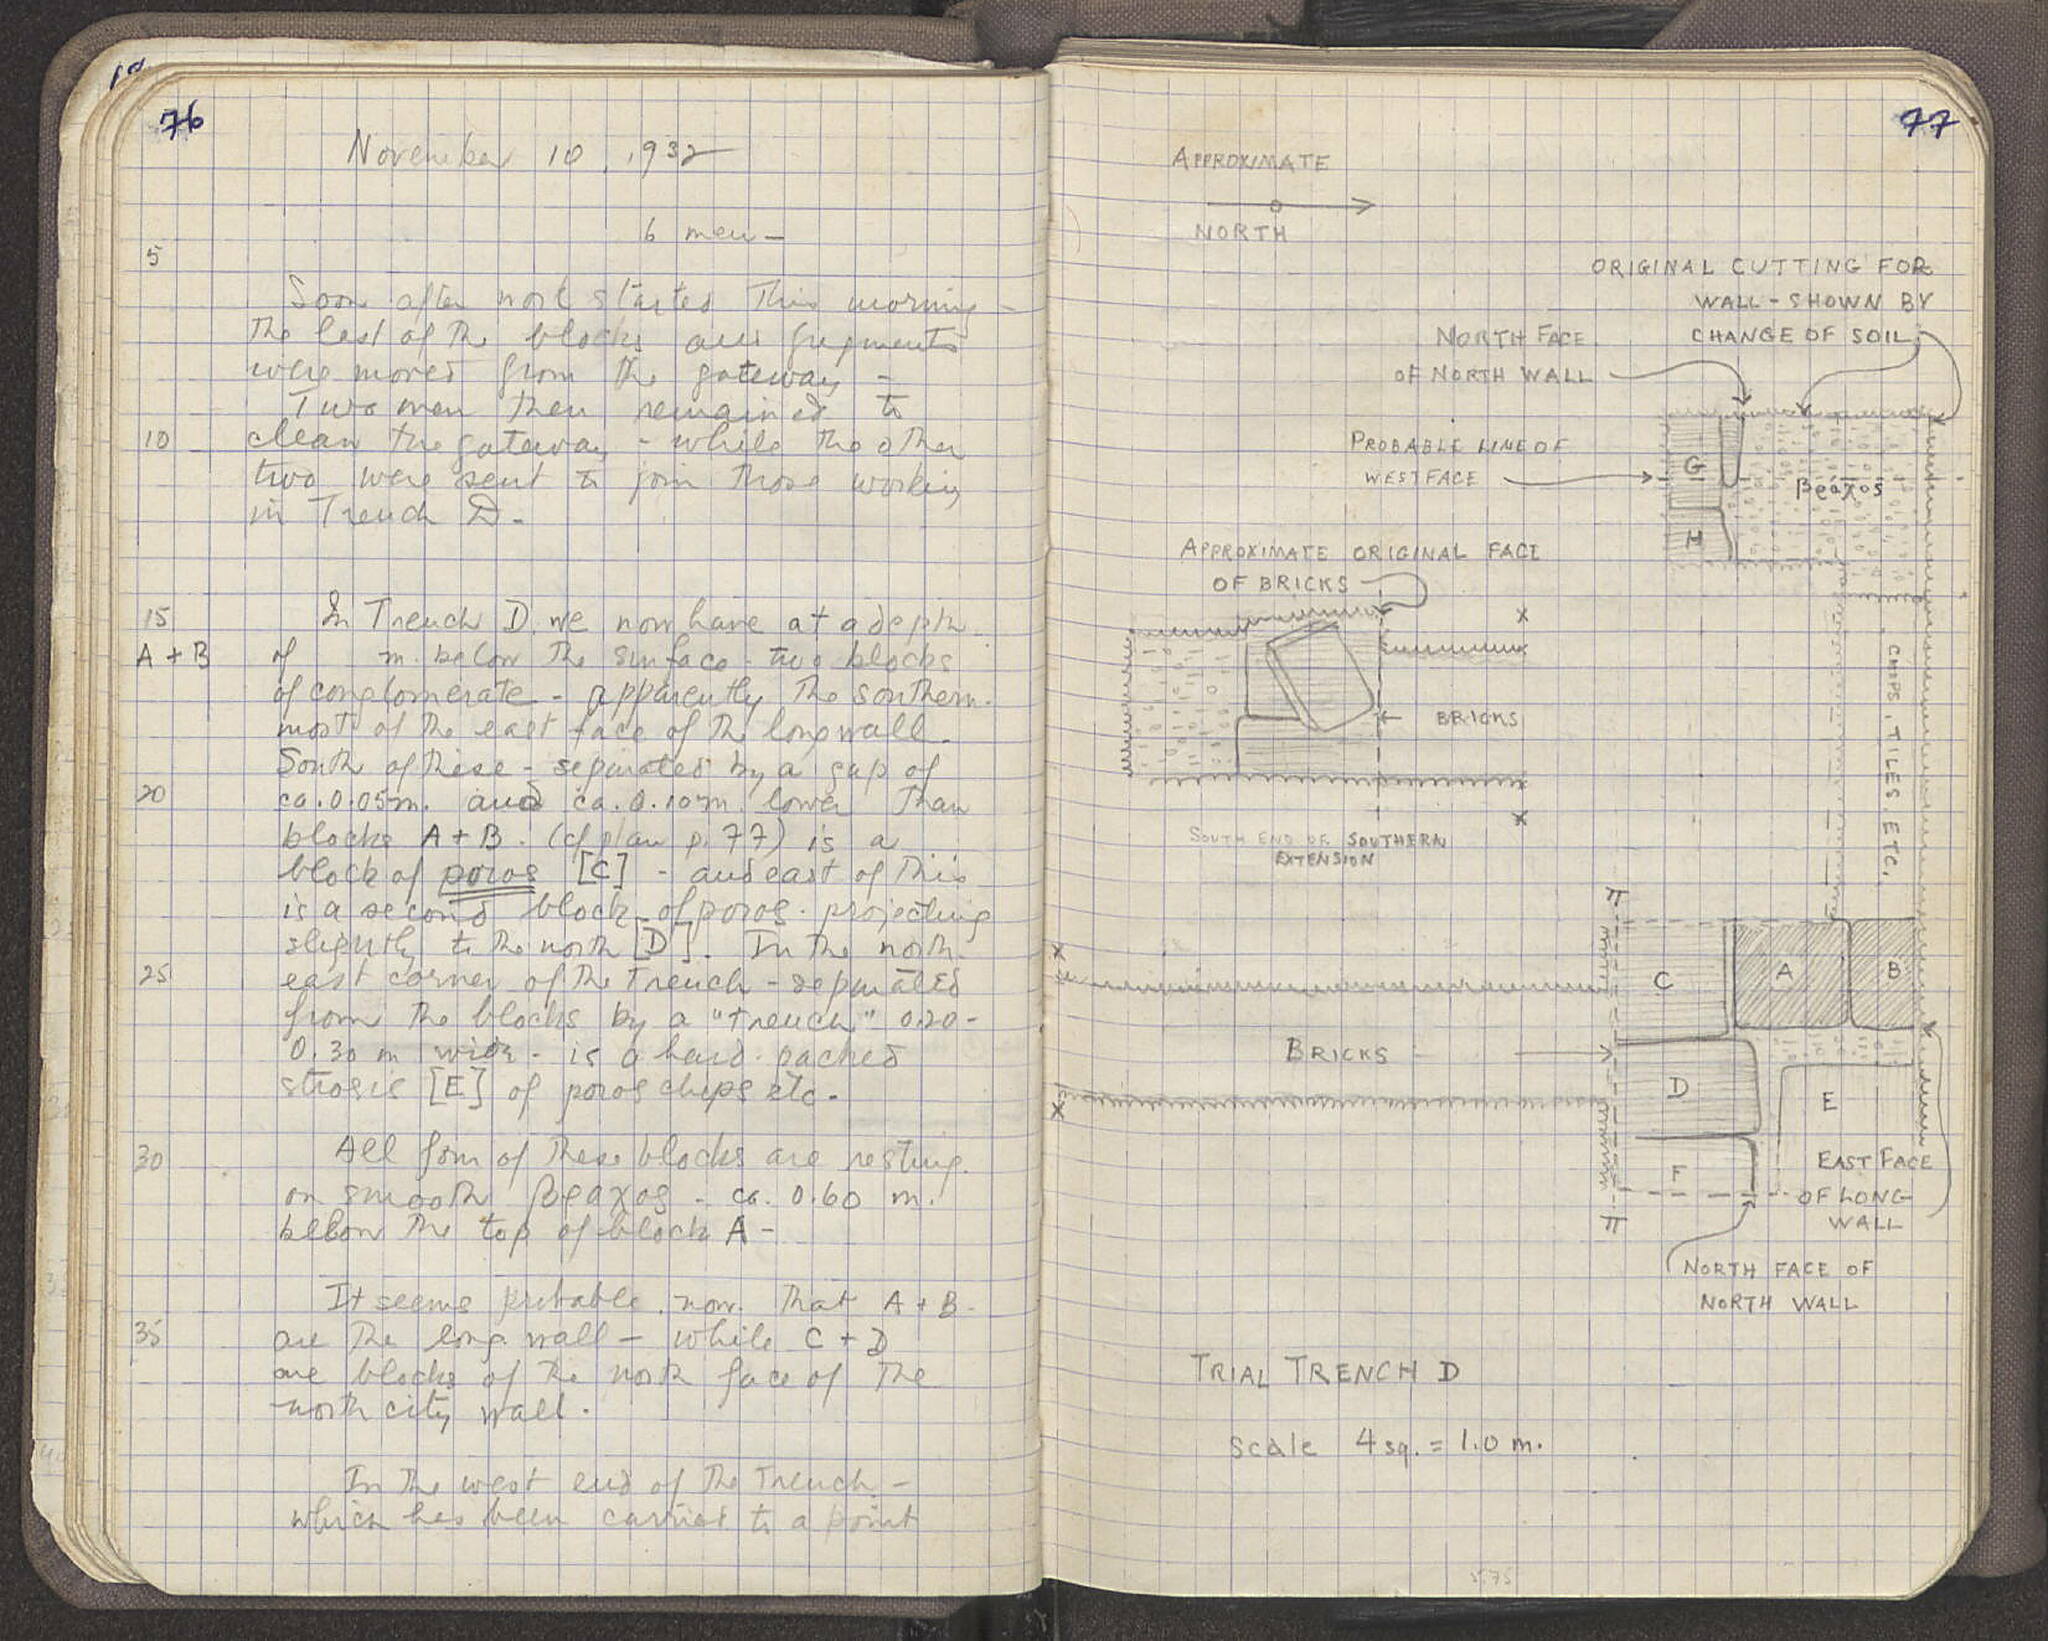 76
November 10, 1932
6 men –
5
Soon after work started this morning –
the last of the blocks and fragments
were moved from the gateway –
Two men then remained to
10 clean the gateway – while the other
two were sent to join those working
in Trench D –
15 In Trench D. we now have at a depth
A + B of m. below the surface – two blocks
of conglomerate – apparently the southern-
most of the east face of the long wall.
South of these – separated by a gap of
20 ca. 0.05 m. and ca. 0.10 m. lower than
blocks A + B. (cf plan p. 77) is a
block of poros [C] – and east of this
is a second block of poros. projecting
slightly to the north [D]. In the north-
25 east corner of the trench – separated
from the blocks by a "trench" 0.20 –
0.30 m wide – is a hard packed
strosis [E] of poros chips etc –
30 All four of these blocks are resting
on smooth βράχος – ca. 0.60 m.
below the top of block A –
It seems probable now that A + B –
35 are the long wall – while C + D
are blocks of the north face of the
north city wall.
In the west end of the trench –
which has been carried to a point
77
APPROXIMATE
NORTH
ORIGINAL CUTTING FOR
WALL – SHOWN BY
CHANGE OF SOIL
NORTH FACE
OF NORTH WALL
PROBABLE LINE OF
WEST FACE
G
βράχος
H
APPROXIMATE ORIGINAL FACE
OF BRICKS
X
BRICKS
X
SOUTH END OF SOUTHERN
EXTENSION
CHIPS, TILES, ETC.
π
X
C
A
B
BRICKS
D
E
X
F
EAST FACE
OF LONG
WALL
π
NORTH FACE OF
NORTH WALL
TRIAL TRENCH D
Scale 4 sq. = 1.0 m.